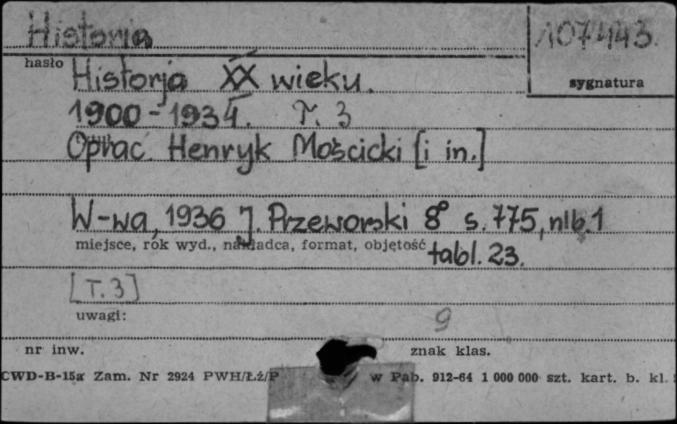 Historja
107443
hasło
sygnatura
Historja XX wieku.
1900-1934. T. 3
Oprac. Henryk Mościcki [i in.]
W-wa, 1936 J. Przeworski 8° s. 775, nlb. 1
miejsce, rok wyd., nakładca, format, objętość
tabl. 23.
[T. 3]
uwagi:
9
nr inw.
znak klas.
CWD-B-15a Zam. Nr 2924 PWH/Łż/P w Pab. 912-64 1 000 000 szt. kart. b. kl.